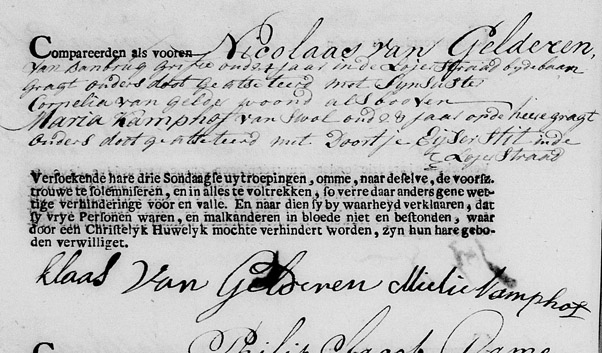 Compareerden als vooren Nicolaas van Gelderen,
van oud jaar in de Loojerstraad by de baan
gragt ouders doot geatsteerd met syn suster
Cornelia van gelde woond als booven
Maria Kamphof van Swol oud 28 jaas op de heere gragt
Ouders doot geatsteerd met Doortje in de
Lojerstraad
Versoekende hare drie Sondaagse uytroepingen, omme, naar deselve, de voorsz.
trouwe te solemniseren, en in alles te voltrekken, so verre daar anders gene wet-
tige verhinderinge vóór en valle. En naar dien sy by waarheyd verklaren, dat
sy vrye Personen waren, en malkanderen in bloede niet en bestonden, waar
door een Christelyk Huwelyk mochte verhindert worden, zyn hun hare gebo-
den verwilliget.
klaas van Gelderen Mietie Kamphof
Philip Jacob Dame